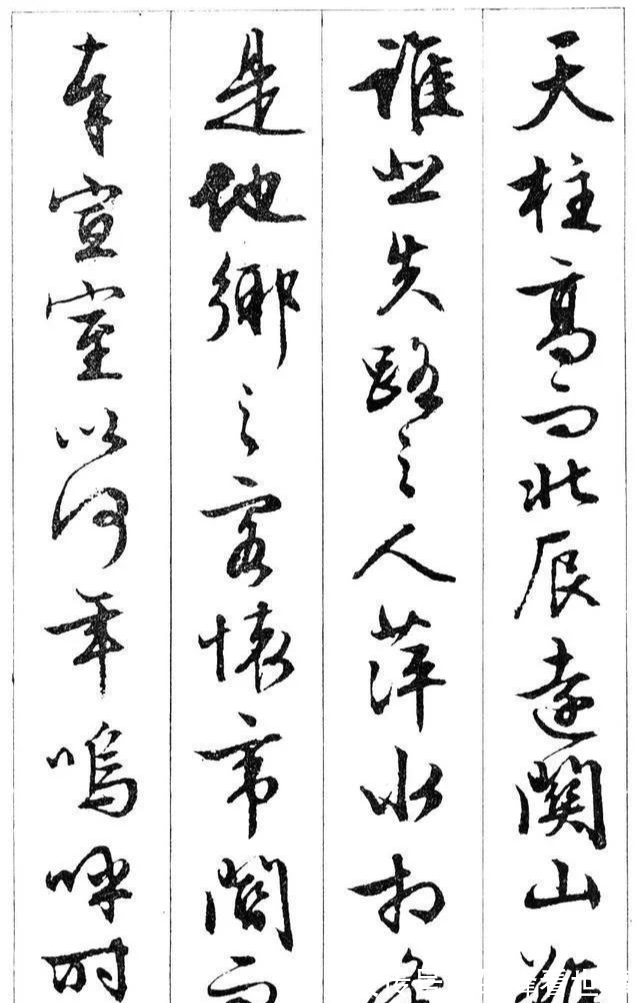 天柱高而北辰遠關山難
誰悲失路之人萍水相
是他鄉之客懷帝閽而
奉宣室以何年嗚呼時